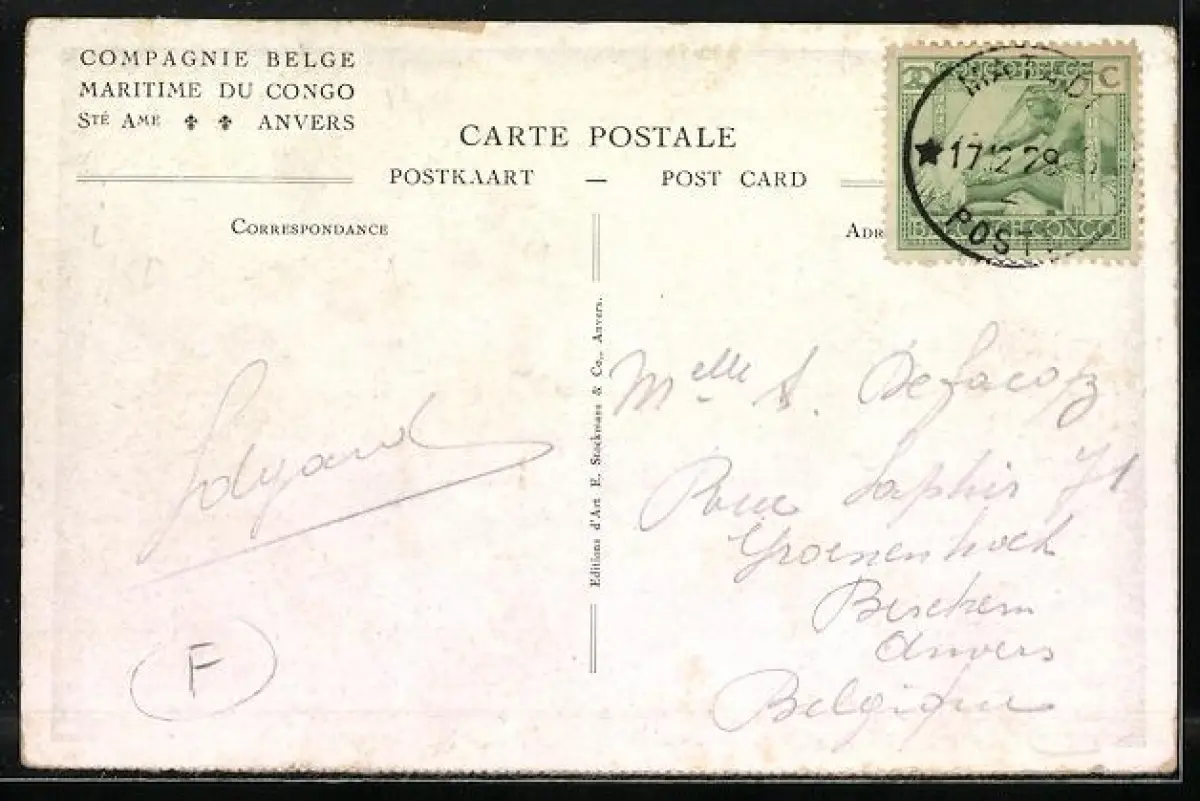 COMPAGNIE BELGE
MARITIME DU CONGO
STÉ AME ANVERS
CARTE POSTALE
POSTKAART — POST CARD
CORRESPONDANCE
ADR
C
CONGO BELGE
MATADI
★17.12.28
POST
BELGISCH CONGO
Editions d'Art E. Stockmans & Co., Anvers.
Melle S. Defacoz
Saphir 71
Groenenhoek
Berchem
Anvers
Belgique
Edgard
F